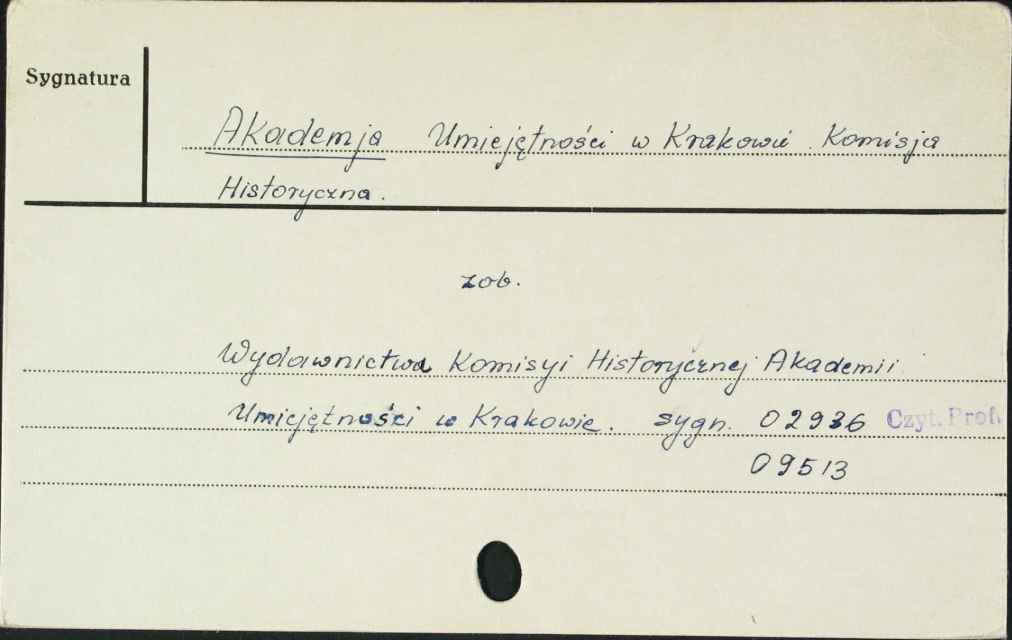 Sygnatura
Akademja Umiejętności w Krakowie. Komisja
Historyczna.
zob.
Wydawnictwa Komisyi Historycznej Akademii
Umiejętności w Krakowie. sygn. 02936 Czyt. Prof.
09513